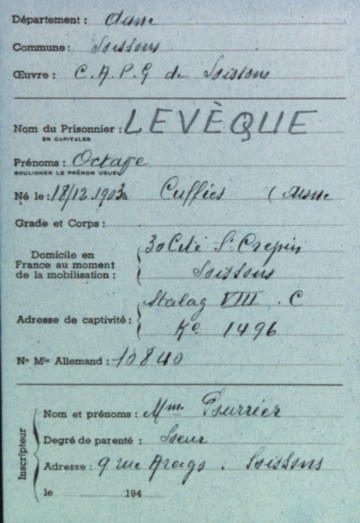 Département : Aisne
Commune : Soissons
Œuvre : C.A.P.G de Soissons
Nom du Prisonnier : LEVÈQUE
EN CAPITALES
Prénoms : Octave
SOULIGNER LE PRÉNOM USUEL
Né le : 18/12 1903 à Cuffies (Aisne
Grade et Corps :
Domicile en
France au moment
de la mobilisation :
30 Cité St Crépin
Soissons
Adresse de captivité :
Stalag VIII . C
Ko 1496
No Mle Allemand : 10840
Inscripteur
Nom et prénoms : Mme Pourrier
Degré de parenté : Soeur
Adresse : 9 rue Arago . Soissons
le 194